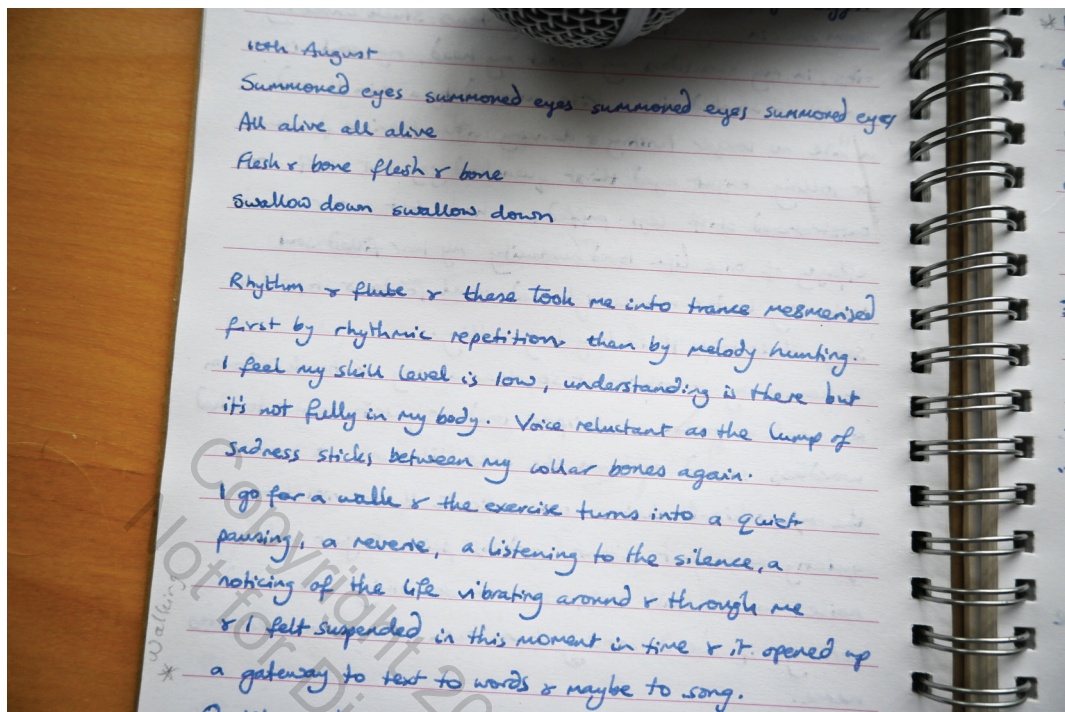 10th August
Summoned eyes summoned eyes summoned eyes summoned eyes
All alive all alive
Flesh & bone flesh & bone
swallow down swallow down
Rhythm & flute & these took me into trance mesmerised
first by rhythmic repetition then by melody hunting.
I feel my skill level is low, understanding is there but
it's not fully in my body. Voice reluctant as the lump of
sadness sticks between my collar bones again.
I go for a walk & the exercise turns into a quiet
pausing, a reverie, a listening to the silence, a
noticing of the life vibrating around & through me
& I felt suspended in this moment in time & it opened up
a gateway to text to words & maybe to song.
* Walking
Copyright 20
Not for Di